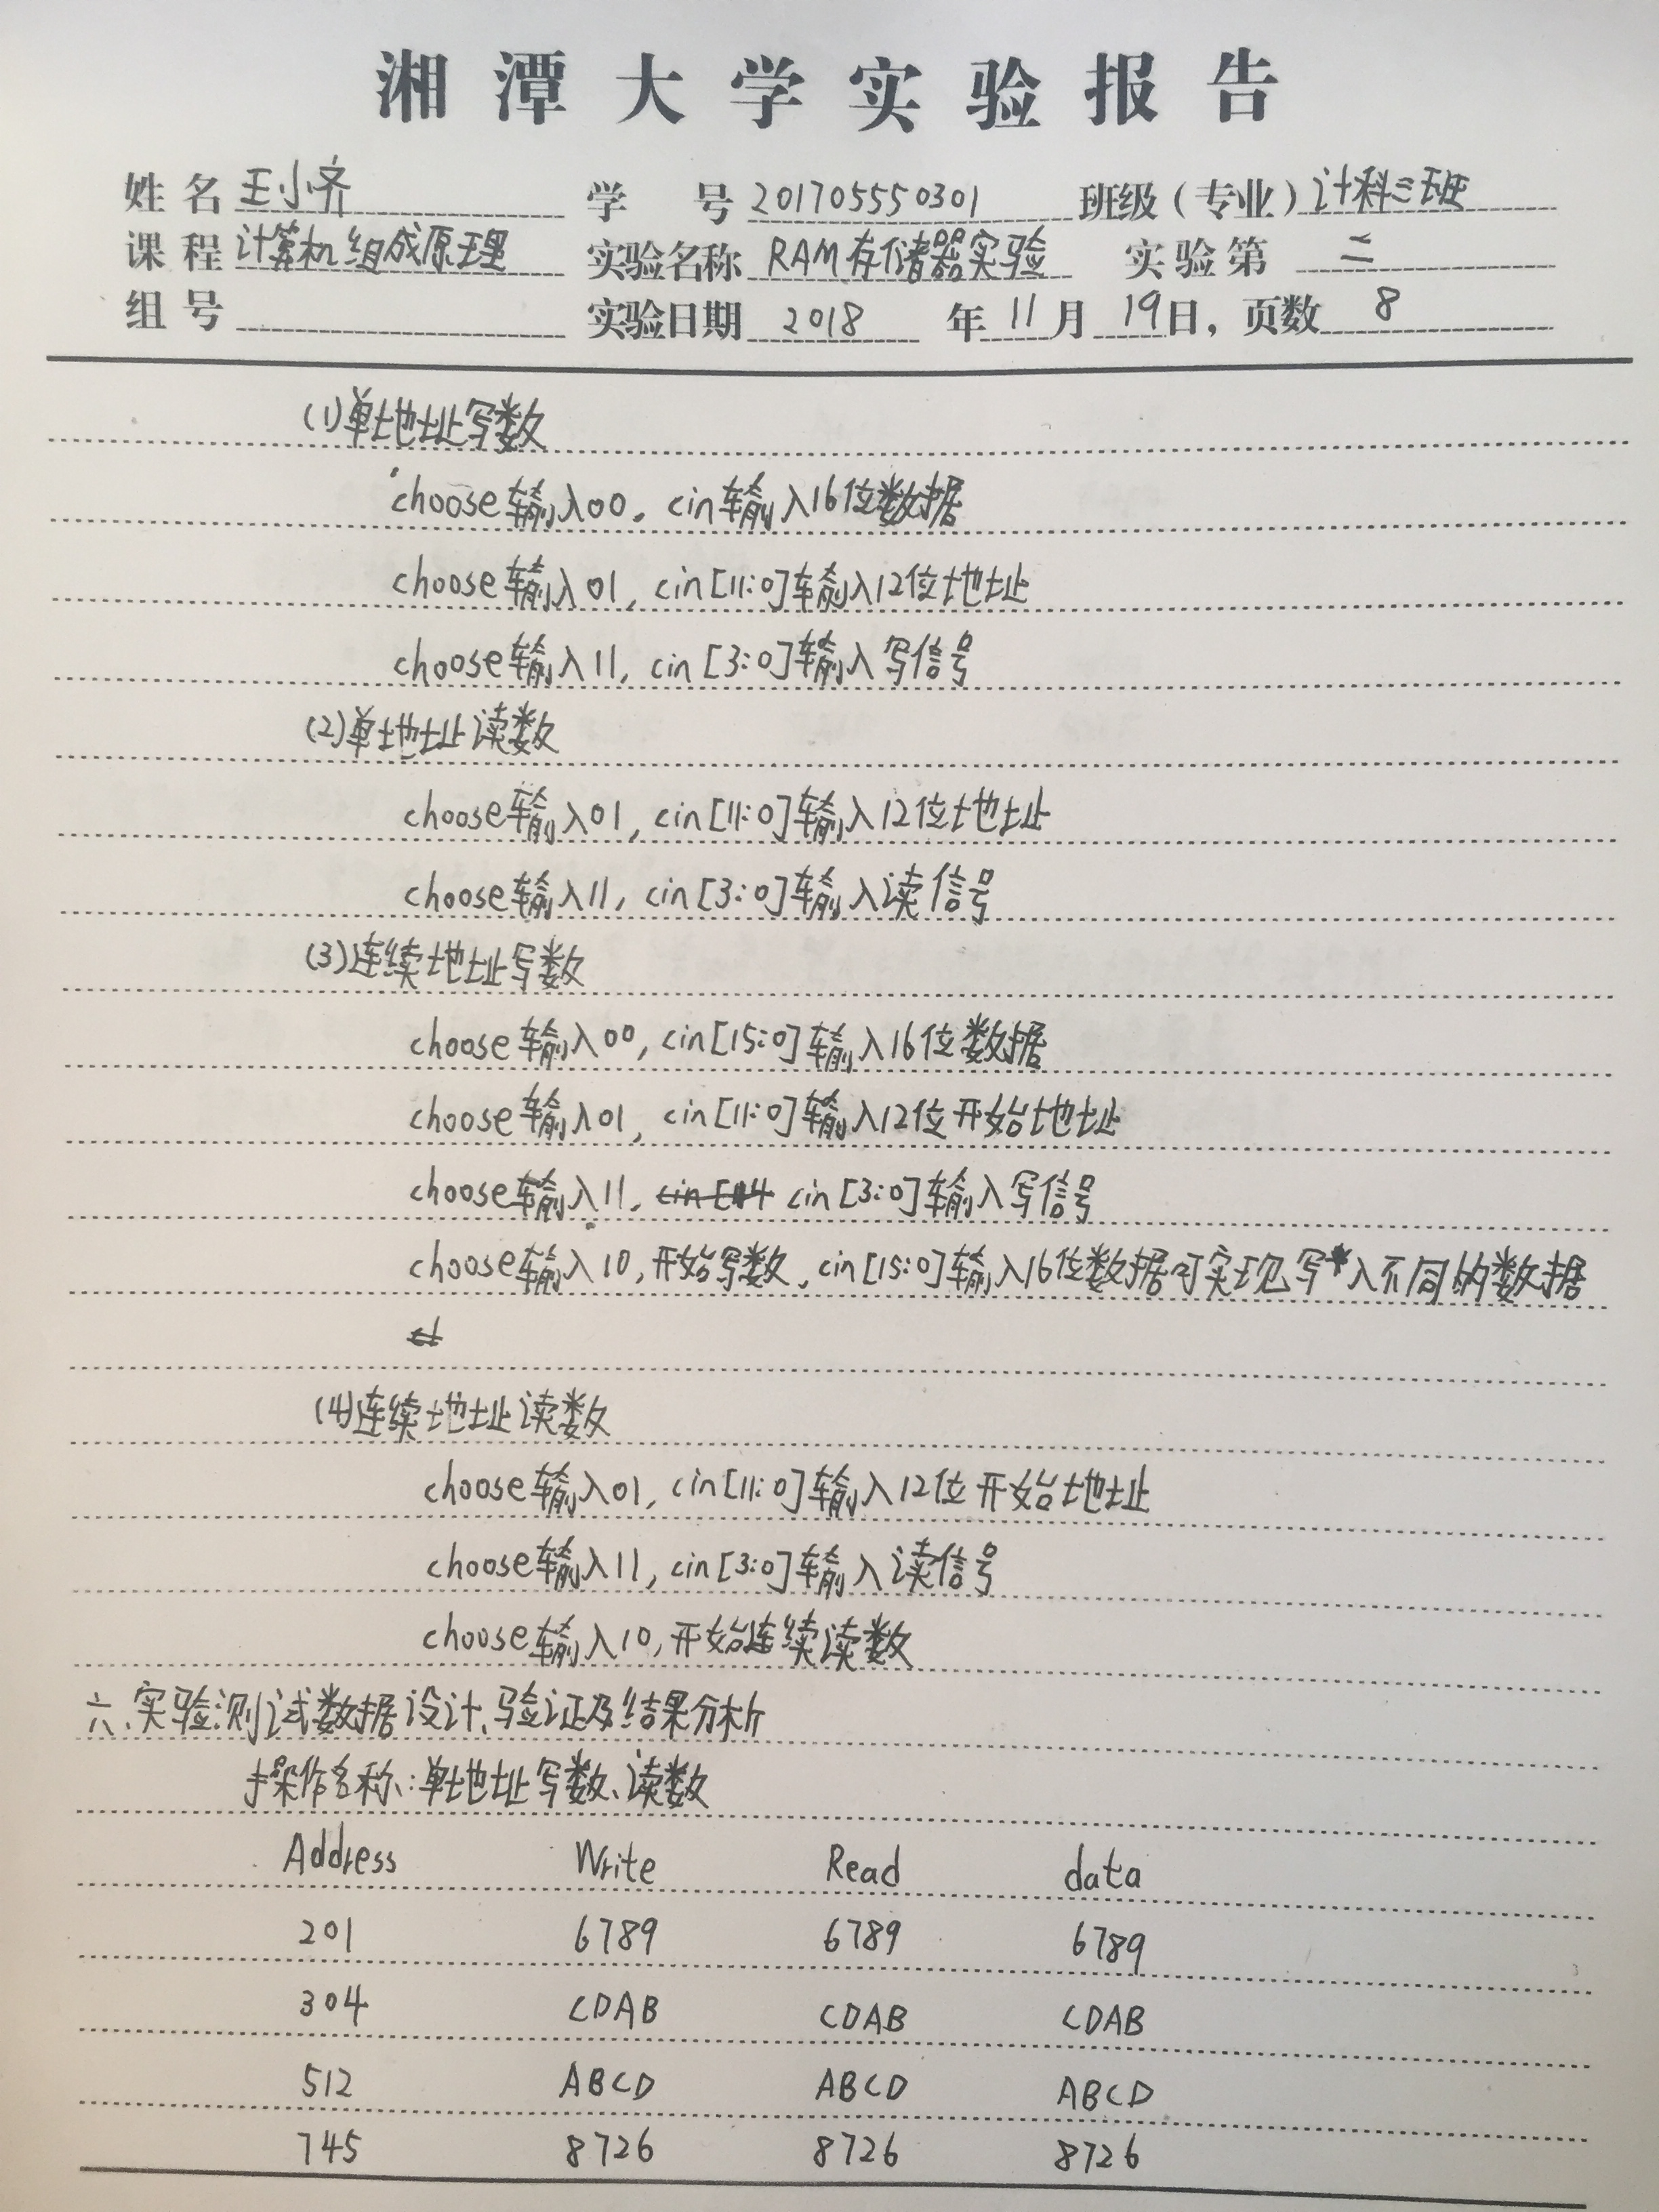 湘潭大学实验报告
姓名 王小齐 学号 201705550301 班级（专业）计科三班
课程 计算机组成原理 实验名称 RAM存储器实验 实验第 二
组号 实验日期 2018 年 11 月 19 日，页数 8
(1)单地址写数
choose输入00. cin输入16位数据
choose输入01, cin[11:0]输入12位地址
choose输入11, cin[3:0]输入写信号
(2)单地址读数
choose输入01, cin[11:0]输入12位地址
choose输入11, cin[3:0]输入读信号
(3)连续地址写数
choose输入00, cin[15:0]输入16位数据
choose输入01, cin[11:0]输入12位开始地址
choose输入11, cin[3:0]输入写信号
choose输入10,开始写数,cin[15:0]输入16位数据可实现写入不同的数据
(4)连续地址读数
choose输入01, cin[11:0]输入12位开始地址
choose输入11, cin[3:0]输入读信号
choose输入10,开始连续读数
六、实验测试数据设计、验证及结果分析
操作名称:单地址写数、读数
Address Write Read data
201 6789 6789 6789
304 CDAB CDAB CDAB
512 ABCD ABCD ABCD
745 8726 8726 8726